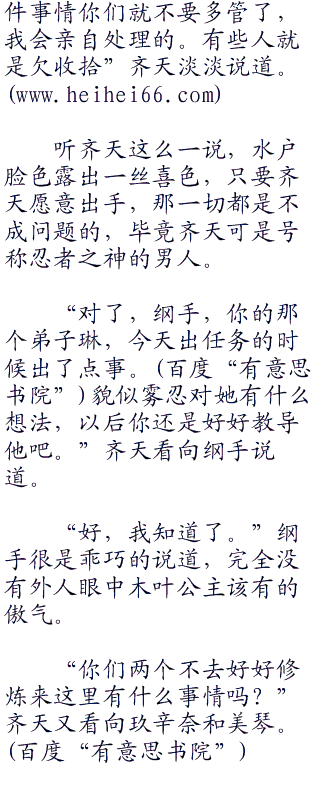 件事情你们就不要多管了，
我会亲自处理的。有些人就
是欠收拾”齐天淡淡说道。
(www.heihei66.com)
听齐天这么一说，水户
脸色露出一丝喜色，只要齐
天愿意出手，那一切都是不
成问题的，毕竟齐天可是号
称忍者之神的男人。
“对了，纲手，你的那
个弟子琳，今天出任务的时
候出了点事。(百度“有意思
书院”)貌似雾忍对她有什么
想法，以后你还是好好教导
他吧。”齐天看向纲手说
道。
“好，我知道了。”纲
手很是乖巧的说道，完全没
有外人眼中木叶公主该有的
傲气。
“你们两个不去好好修
炼来这里有什么事情吗？”
齐天又看向玖辛奈和美琴。
(百度“有意思书院”)